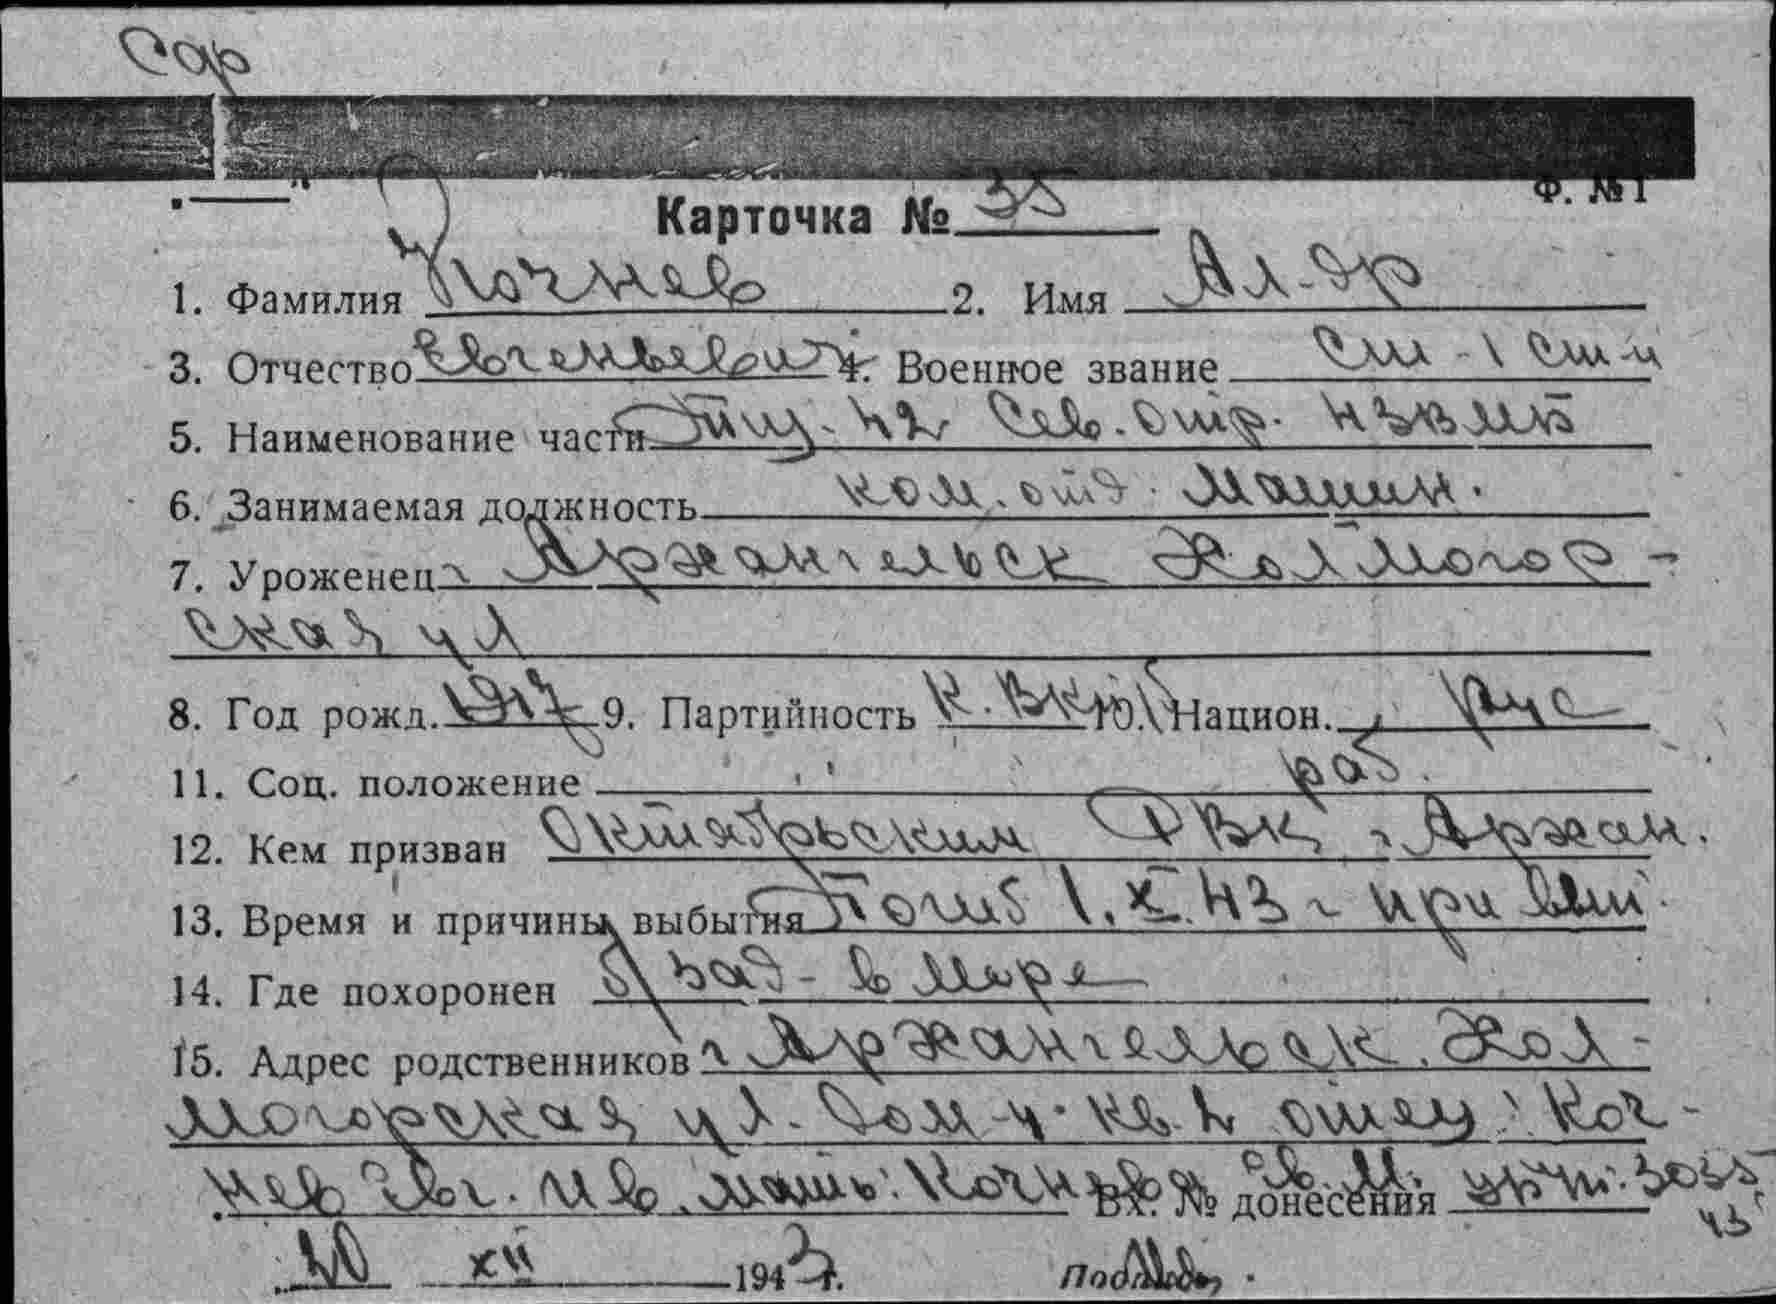 Сар
Ф. №1
Карточка № 35
1. Фамилия Кочнев 2. Имя Ал-др
3. Отчество Евгеньевич 4. Военное звание Сш - 1 Сш-и
5. Наименование части Сев. Отр.
6. Занимаемая должность ком. отд. машин.
7. Уроженец г Архангельск Холмогор-
ская ул
8. Год рожд. 1917 9. Партийность К. ВКПб 10. Национ. рус
11. Соц. положение раб.
12. Кем призван Октябрьским РВК г Архан.
13. Время и причины выбытия Погиб 1.XI.43 г при вып.
14. Где похоронен б/зад - в море
15. Адрес родственников г Архангельск. Хол-
могорская ул. дом 4. кв. 2 отец: Коч-
нев Евг. Ив. мать: Кочнева Ев. М. Вх. № донесения
43
10 XII 1943 г. Подпись